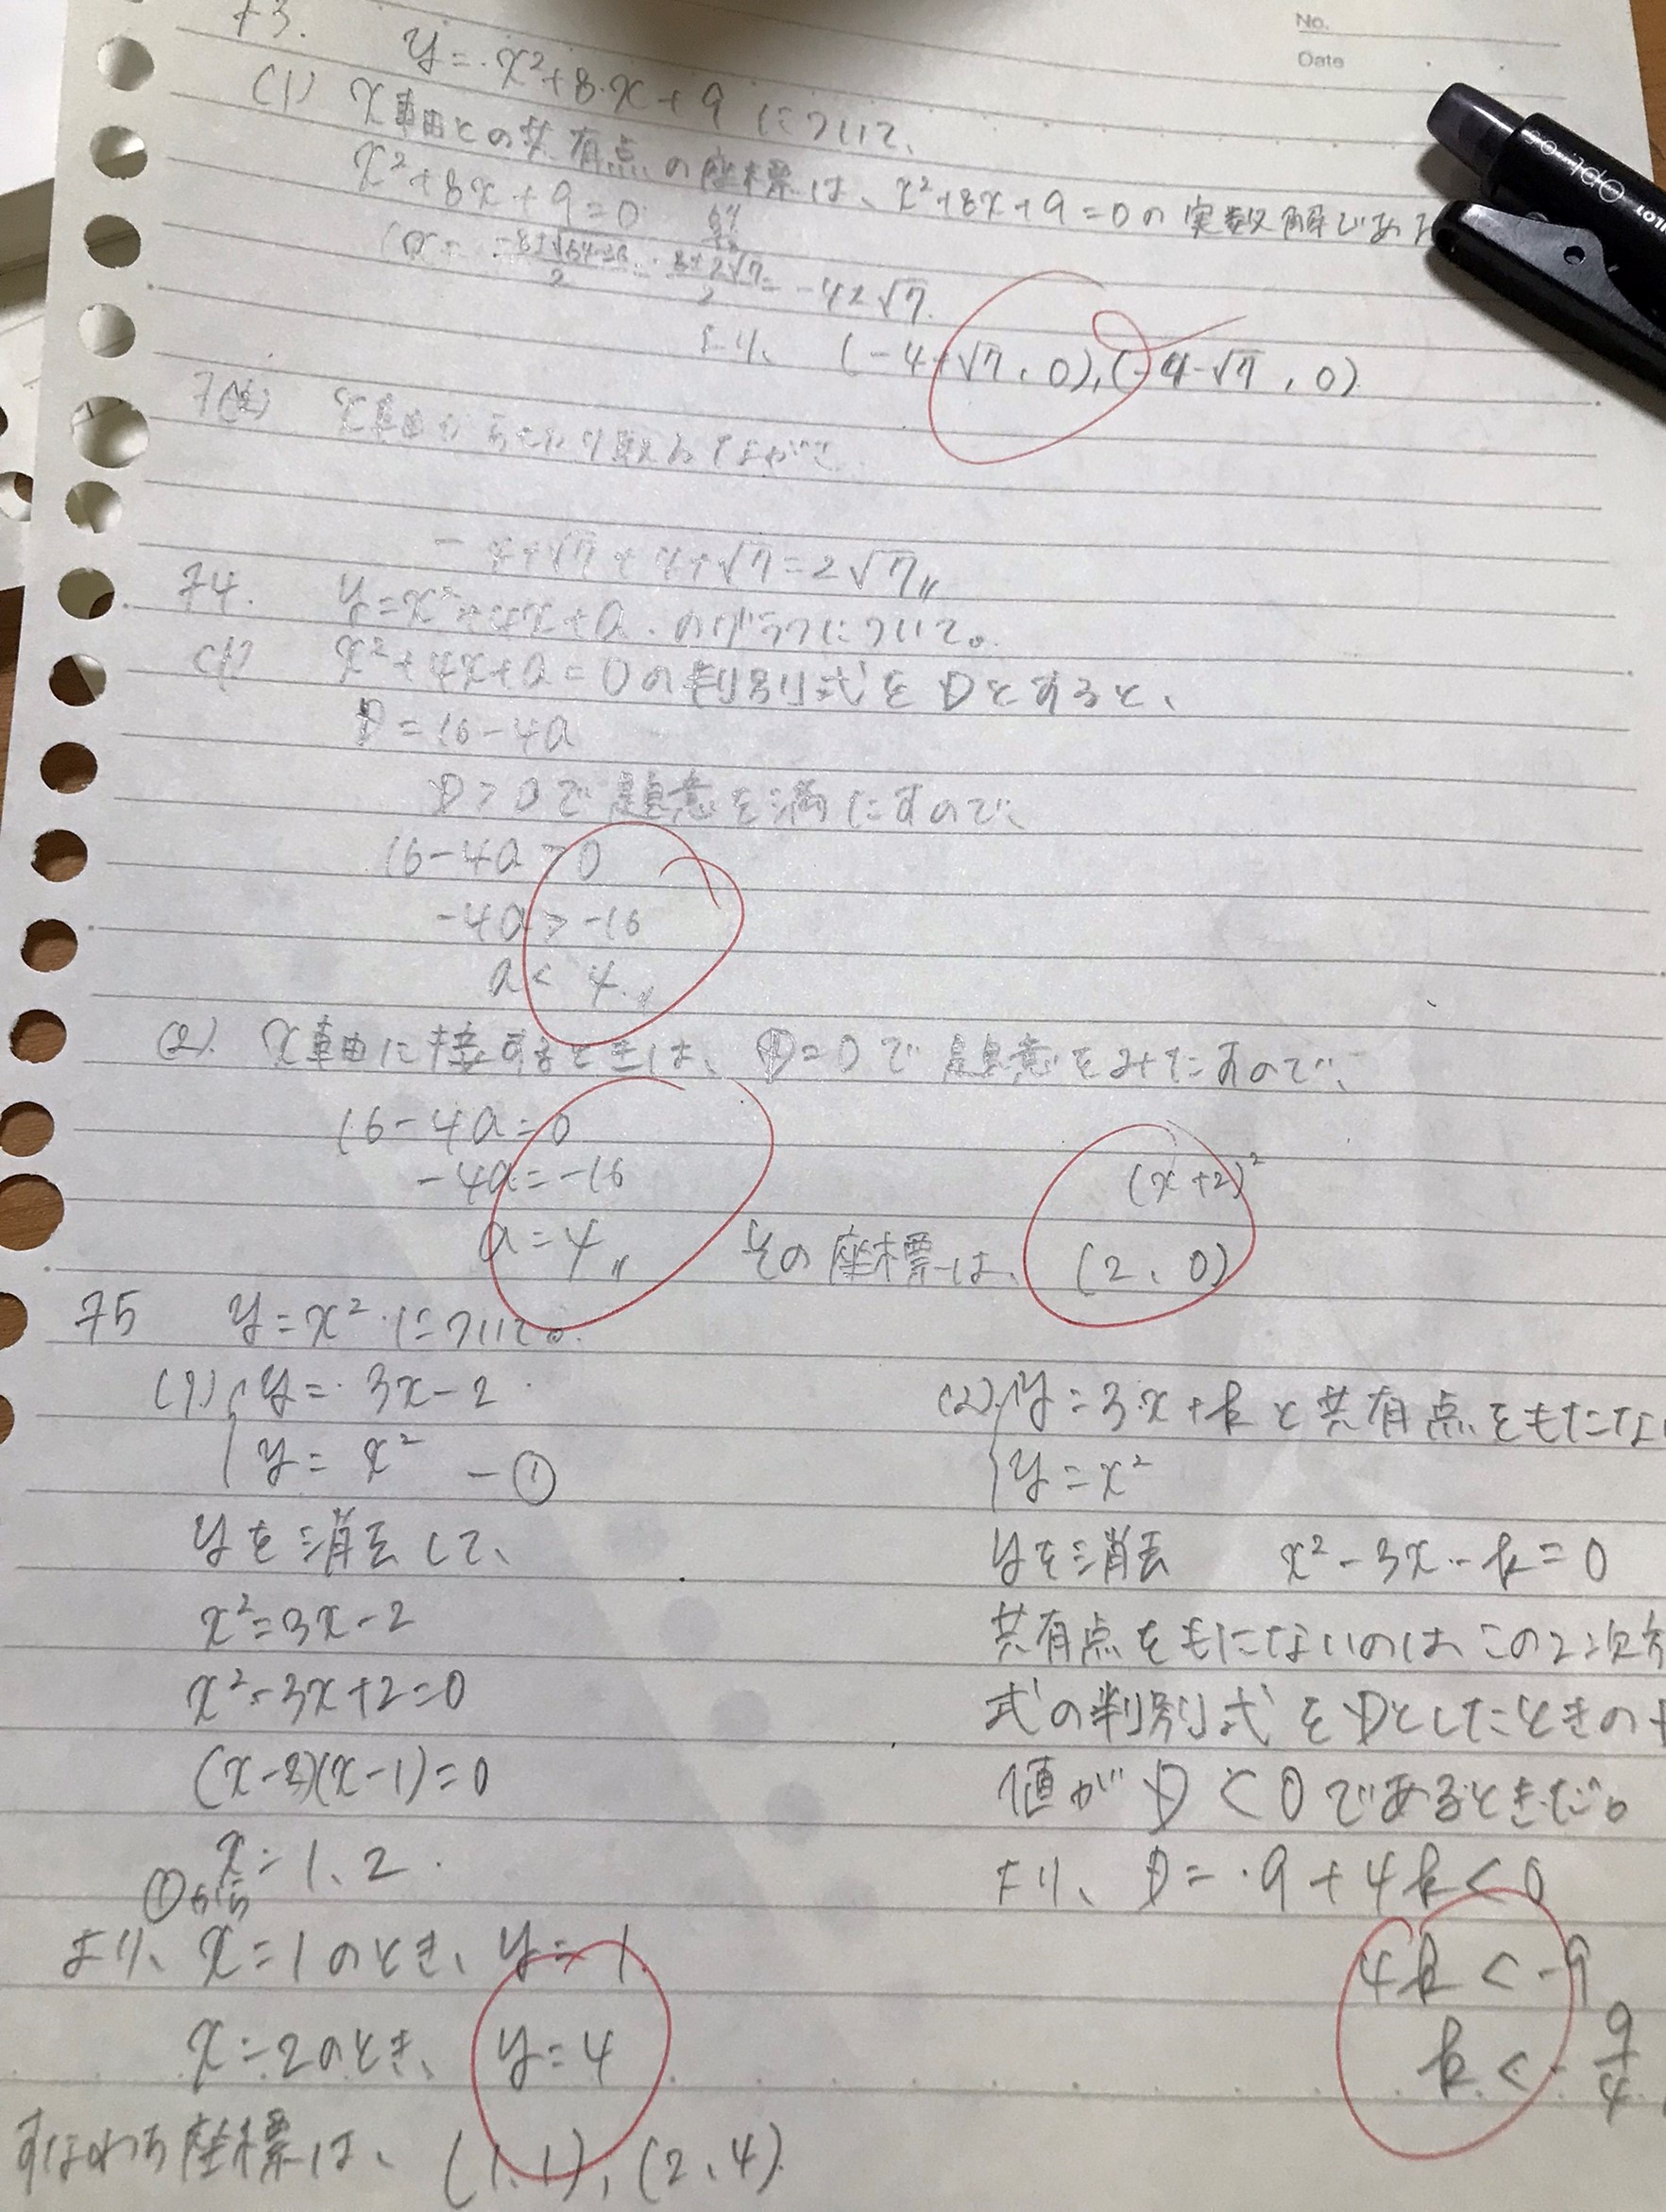 No.
Date
73. y=x²+8x+9 について、
(1) x軸との共有点の座標は、x²+8x+9=0の実数解である
x²+8x+9=0
x= -8±√64-36/2 = -8±2√7/2 = -4±√7
より、 (-4+√7, 0), (-4-√7, 0)
7(2) x軸から切り取る
-4+√7+4+√7=2√7〃
74. y=x²+4x+a のグラフについて。
(1) x²+4x+a=0の判別式をDとすると、
D=16-4a
D>0で題意を満たすので、
16-4a>0
-4a>-16
a<4〃
(2) x軸に接するときは、D=0で題意をみたすので、
16-4a=0
-4a=-16
(x+2)²
a=4〃 その座標は、(2、0)
75 y=x²について。
(1) { y=3x-2
y=x² -①
yを消去して、
x²=3x-2
x²-3x+2=0
(x-2)(x-1)=0
x=1、2
①から
より、x=1のとき、y=1
x=2のとき、y=4
すなわち座標は、(1、1)、(2、4)
(2) { y=3x+kと共有点をもたな
y=x²
yを消去 x²-3x-k=0
共有点をもたないのはこの2次方
式の判別式をDとしたときの
値がD<0であるときだ。
より、D=9+4k<0
4k<-9
k<-9/4